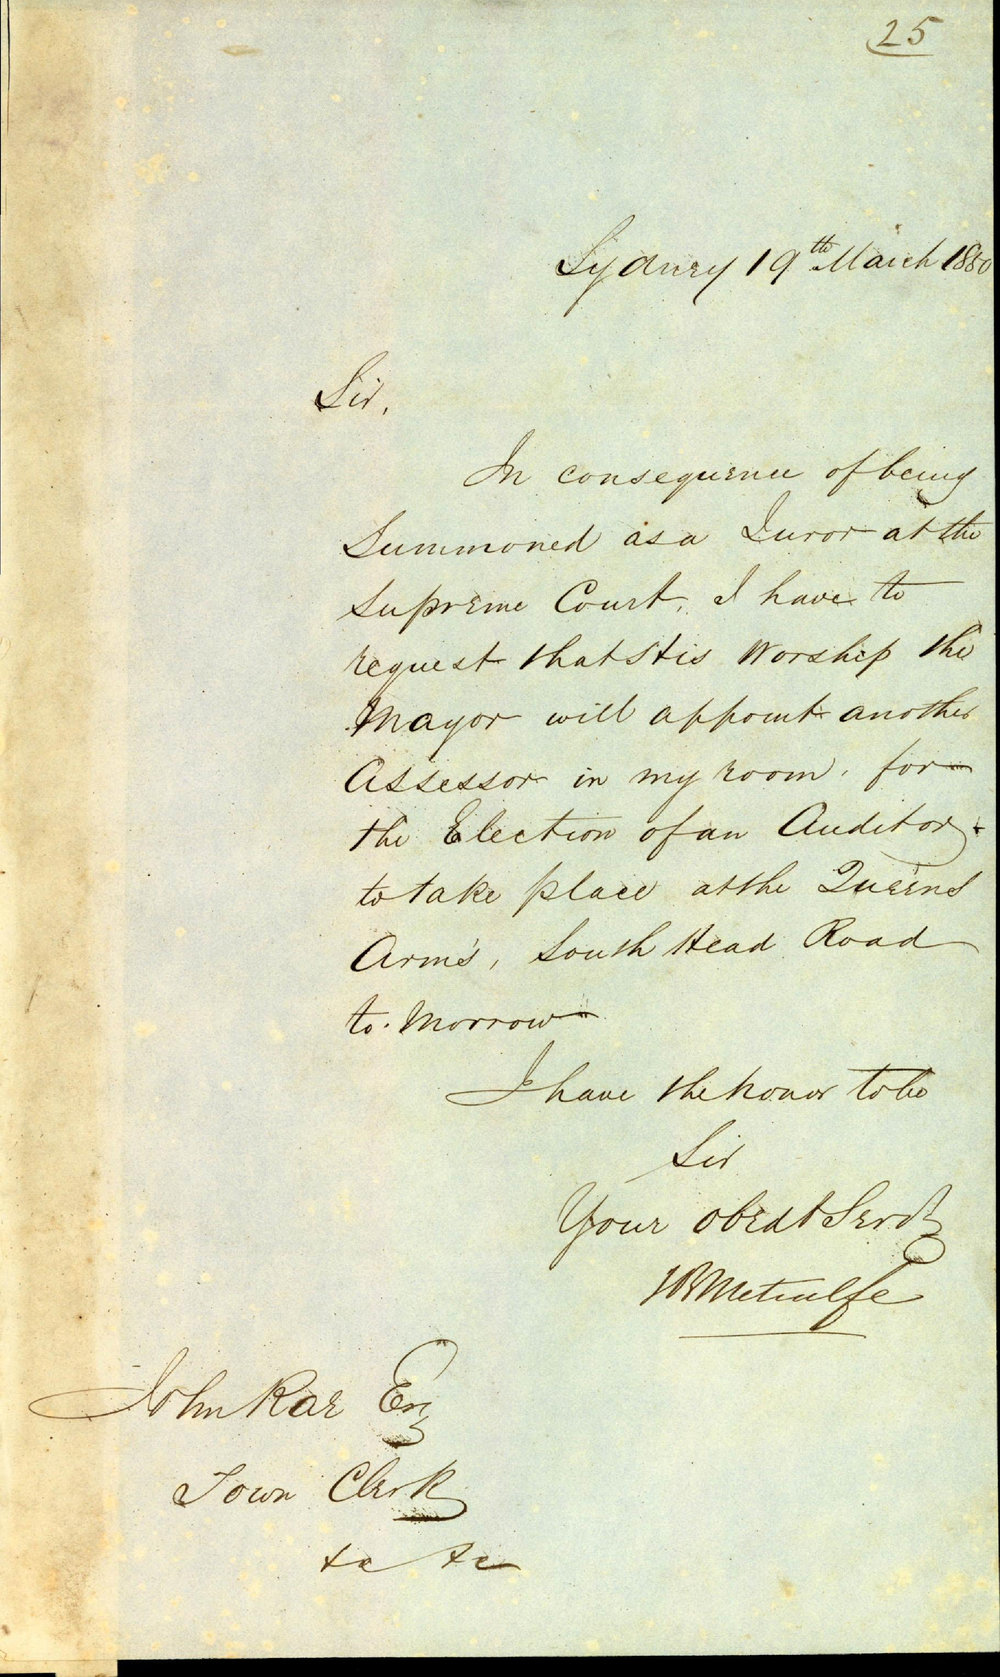 25
Sydney 19th March 1850
Sir,
In consequence of being
Summoned as a Juror at the
Supreme Court, I have to
request that His Worship the
Mayor will appoint another
Assessor in my room, for
the Election of an Auditor
to take place at the Queens
Arms, South Head Road
to-Morrow
I have the honor to be
Sir
Your obedt Servt
Metcalfe
John Rae Esq
Town Clerk
&c &c